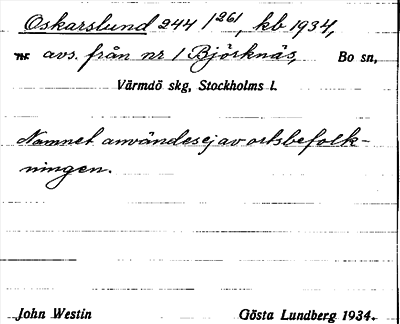 Oskarslund 244 /261, kb 1934,
avs. från nr 1 Björknäs, Bo sn,
Värmdö skg, Stockholms l.
Namnet användes ej av ortsbefolk-
ningen.
John Westin Gösta Lundberg 1934.